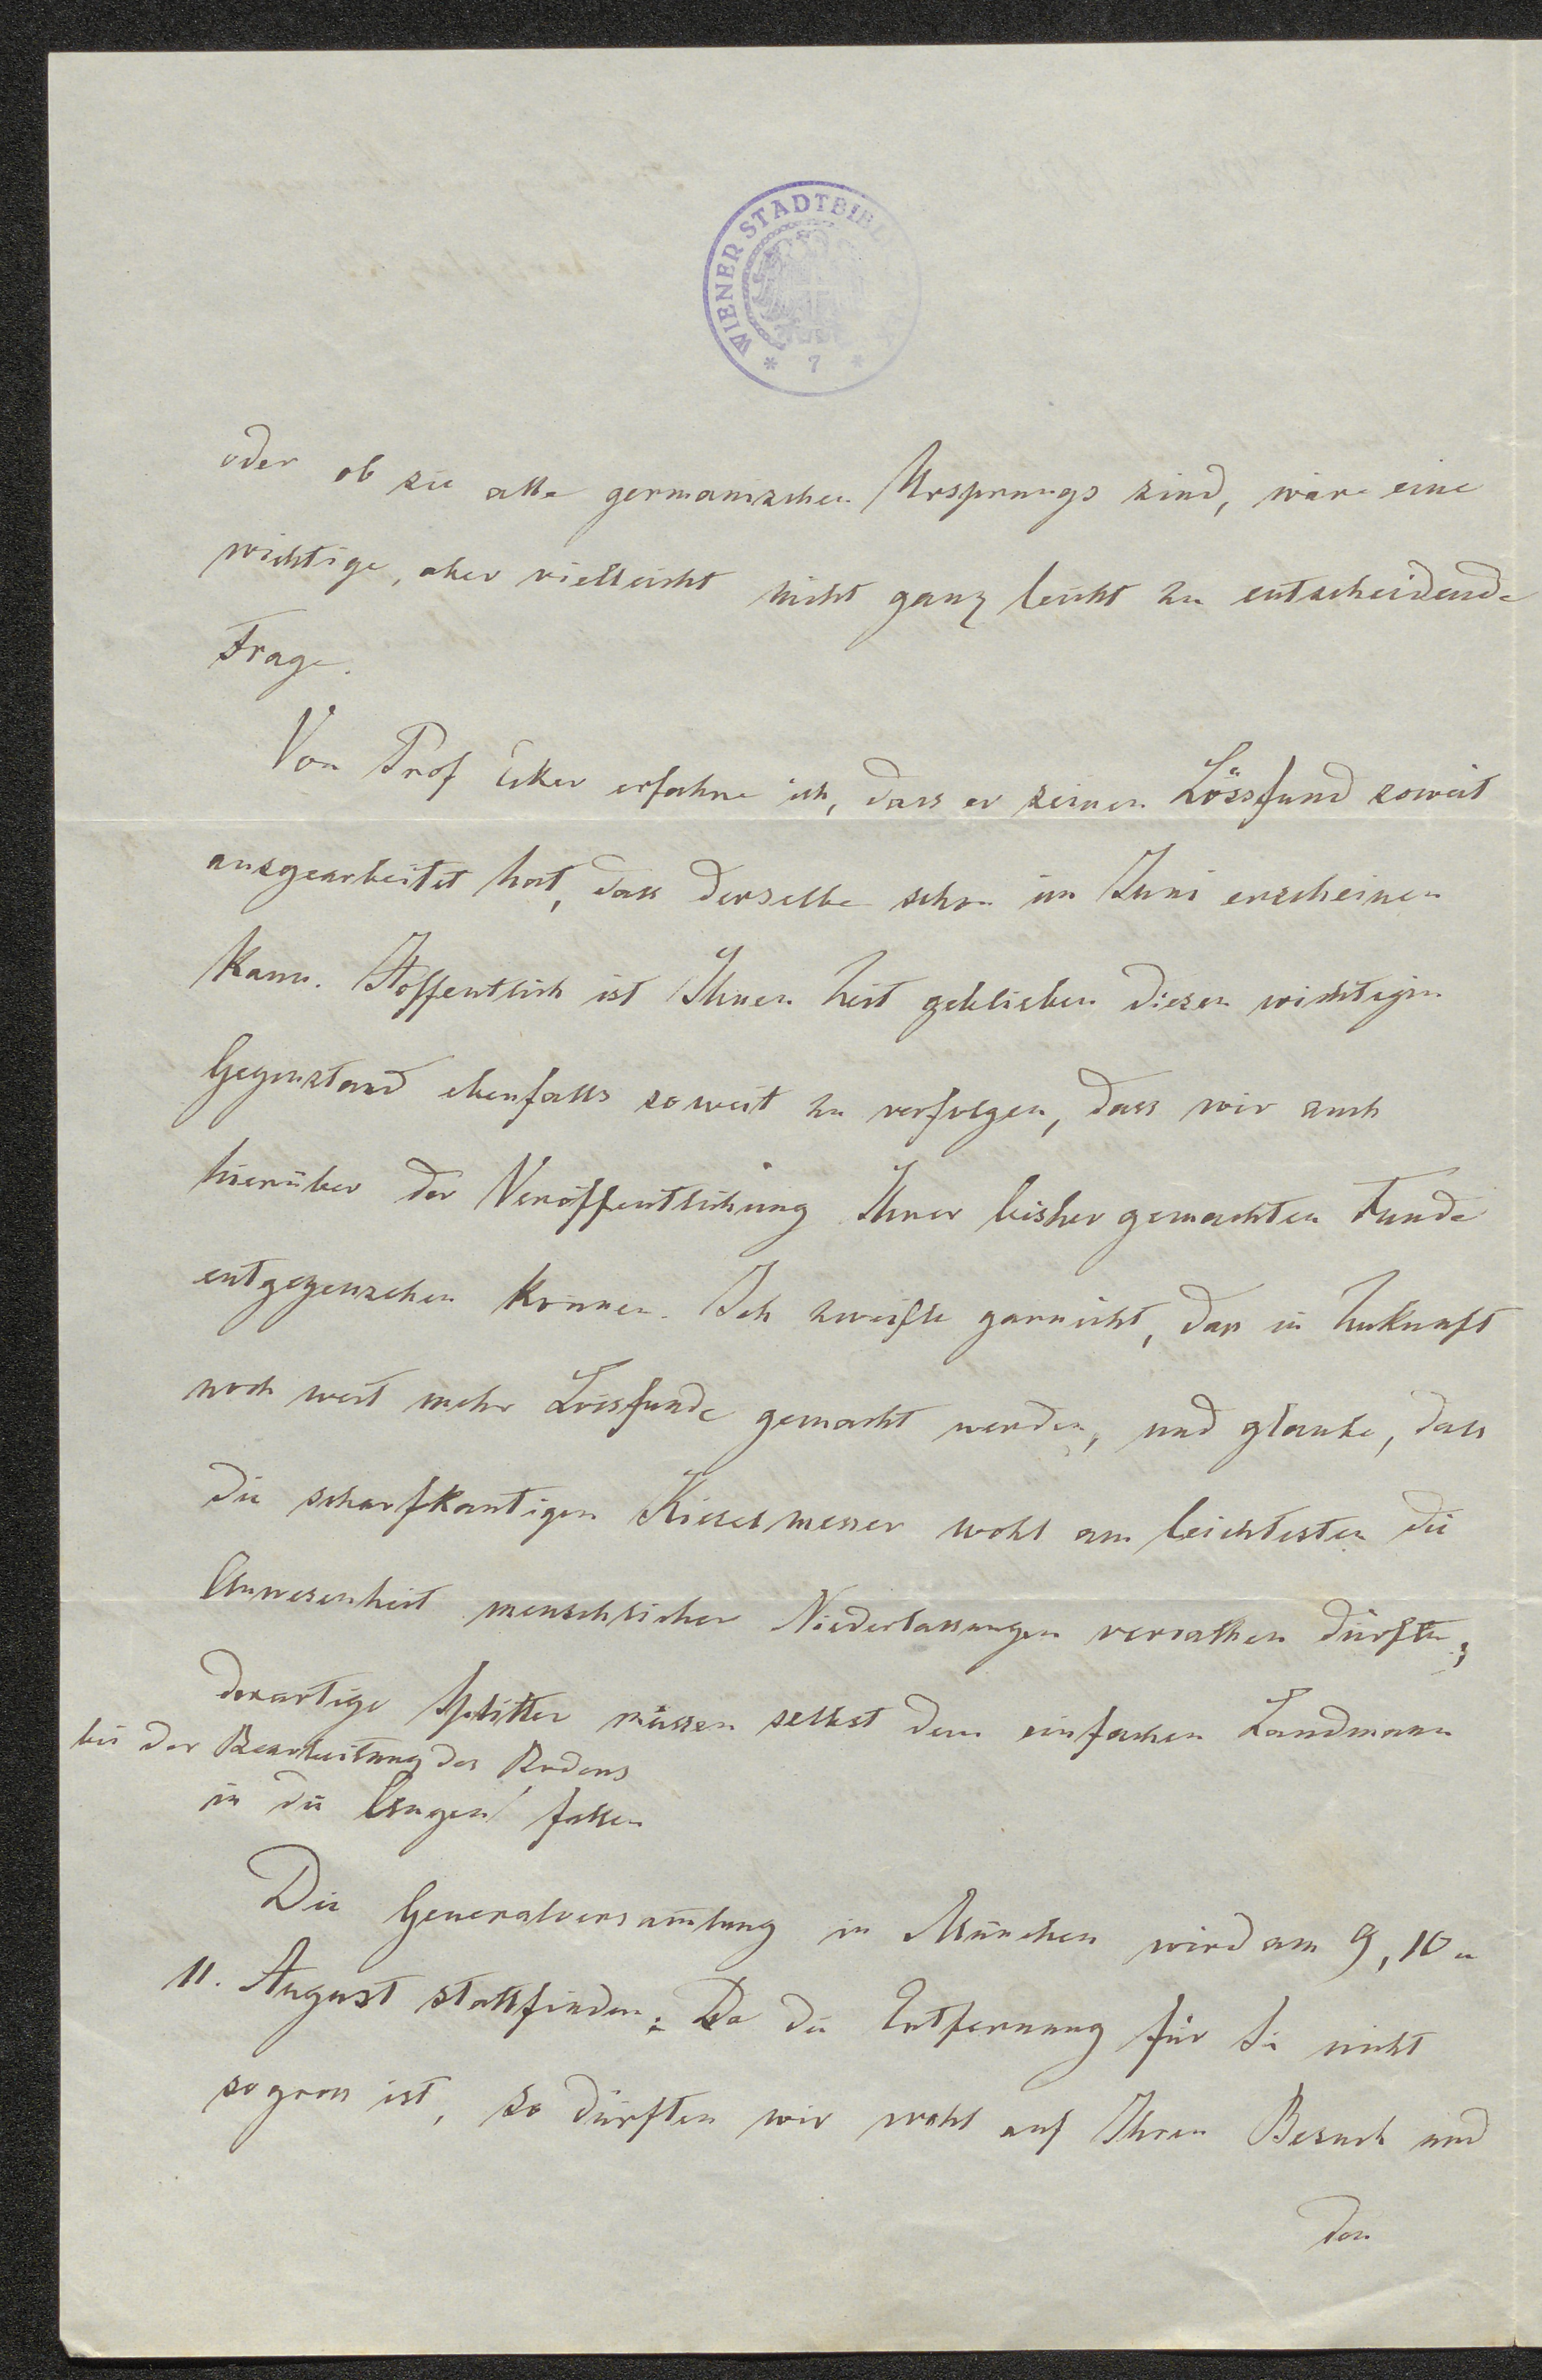 WIENER STADTBIB
* 7 *
oder ob sie alle germanischen Ursprungs sind, wäre eine
wichtige, aber vielleicht nicht ganz leicht zu entscheidende
Frage.
Von Prof Ecker erfahre ich, dass er seinen Lössfund soweit
ausgearbeitet hat, dass derselbe schon im Juni erscheinen
kann. Hoffentlich ist Ihnen Zeit geblieben diesen wichtigen
Gegenstand ebenfalls soweit zu verfolgen, dass wir auch
hierüber der Veröffentlichung Ihrer bisher gemachten Funde
entgegensehen können. Ich zweifle garnicht, dass in Zukunft
noch weit mehr Lössfunde gemacht werden, und glaube, dass
die scharfkantigen Kieselmesser wohl am leichtesten die
Anwesenheit menschlicher Niederlassungen verrathen dürften;
derartige Splitter müssen selbst dem einfachen Landmann
bei der Bearbeitung des Bodens
in die Augen fallen
Die Generalversam̄lung in München wird am 9, 10 u
11. August stattfinden. Da die Entfernung für Sie nicht
so gross ist, so dürften wir wohl auf Ihren Besuch und
den